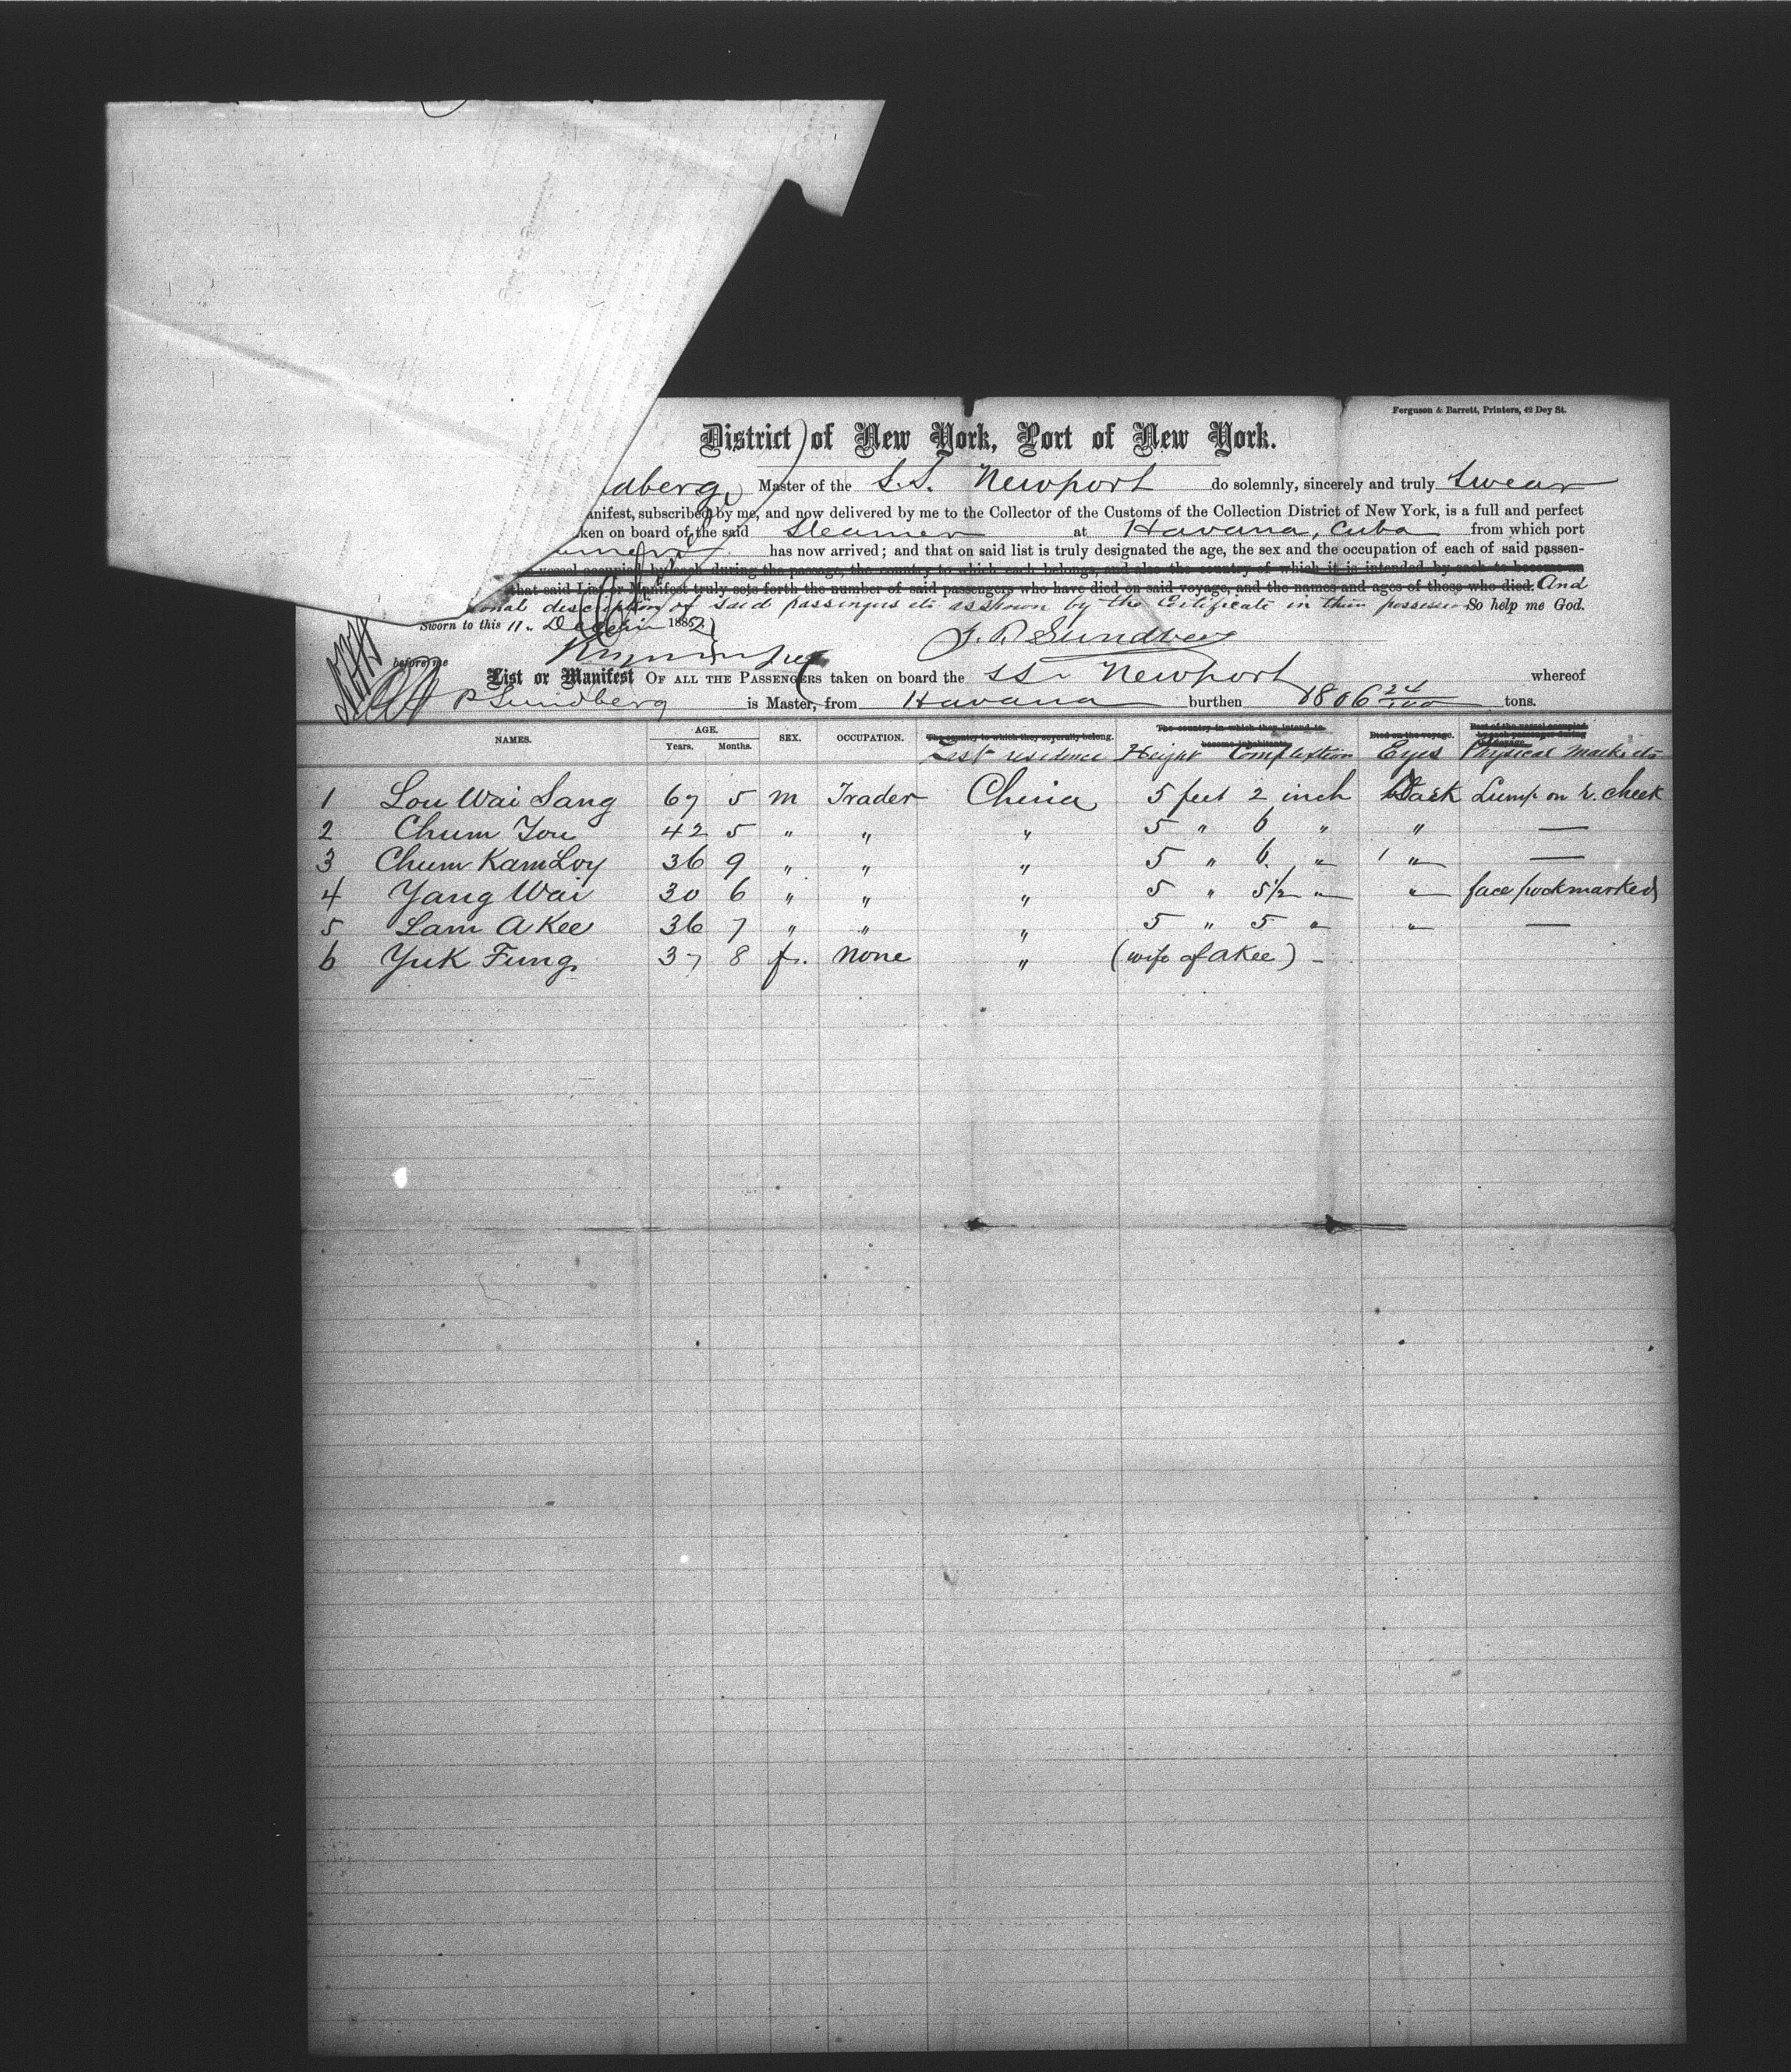 Ferguson & Barrett, Printers, 42 Dey St.
District of New York, Port of New York.
dberg, Master of the S.S. Newport do solemnly, sincerely and truly Swear
anifest, subscribed by me, and now delivered by me to the Collector of the Customs of the Collection District of New York, is a full and perfect
ken on board of the said Steamer at Havana, Cuba from which port
has now arrived; and that on said list is truly designated the age, the sex and the occupation of each of said passen-
vessel occupied by each during the passage, the country to which each belongs, and also the country of which it is intended by each to become an
that said List or Manifest truly sets forth the number of said passengers who have died on said voyage, and the names and ages of those who died. And
onal description of said passengers etc as shown by the Certificate in their possession So help me God.
Sworn to this 11 188
J. P. Sundberg
before me
List or Manifest OF ALL THE PASSENGERS taken on board the SS Newport whereof
P Sundberg is Master, from Havana burthen 1806 24/100 tons.
NAMES. AGE. Years. Months. SEX. OCCUPATION. The country to which they severally belong. The country in which they intend to become inhabitants. Died on the voyage. Part of the vessel occupied by each passenger during
Last residence Height Complextion Eyes Physical marks etc
1 Lou Wai Sang 67 5 m Trader China 5 feet 2 inch Dark Lump on r. cheek
2 Chum You 42 5 " " " 5 " 6 " " —
3 Chum Kam Loy 36 9 " " " 5 " 6 " " —
4 Yang Wai 30 6 " " " 5 " 5½ " " face pockmarked
5 Lam A Kee 36 7 " " " 5 " 5 " " —
6 Yuk Fung 37 8 f. none " (wife of AKee) –